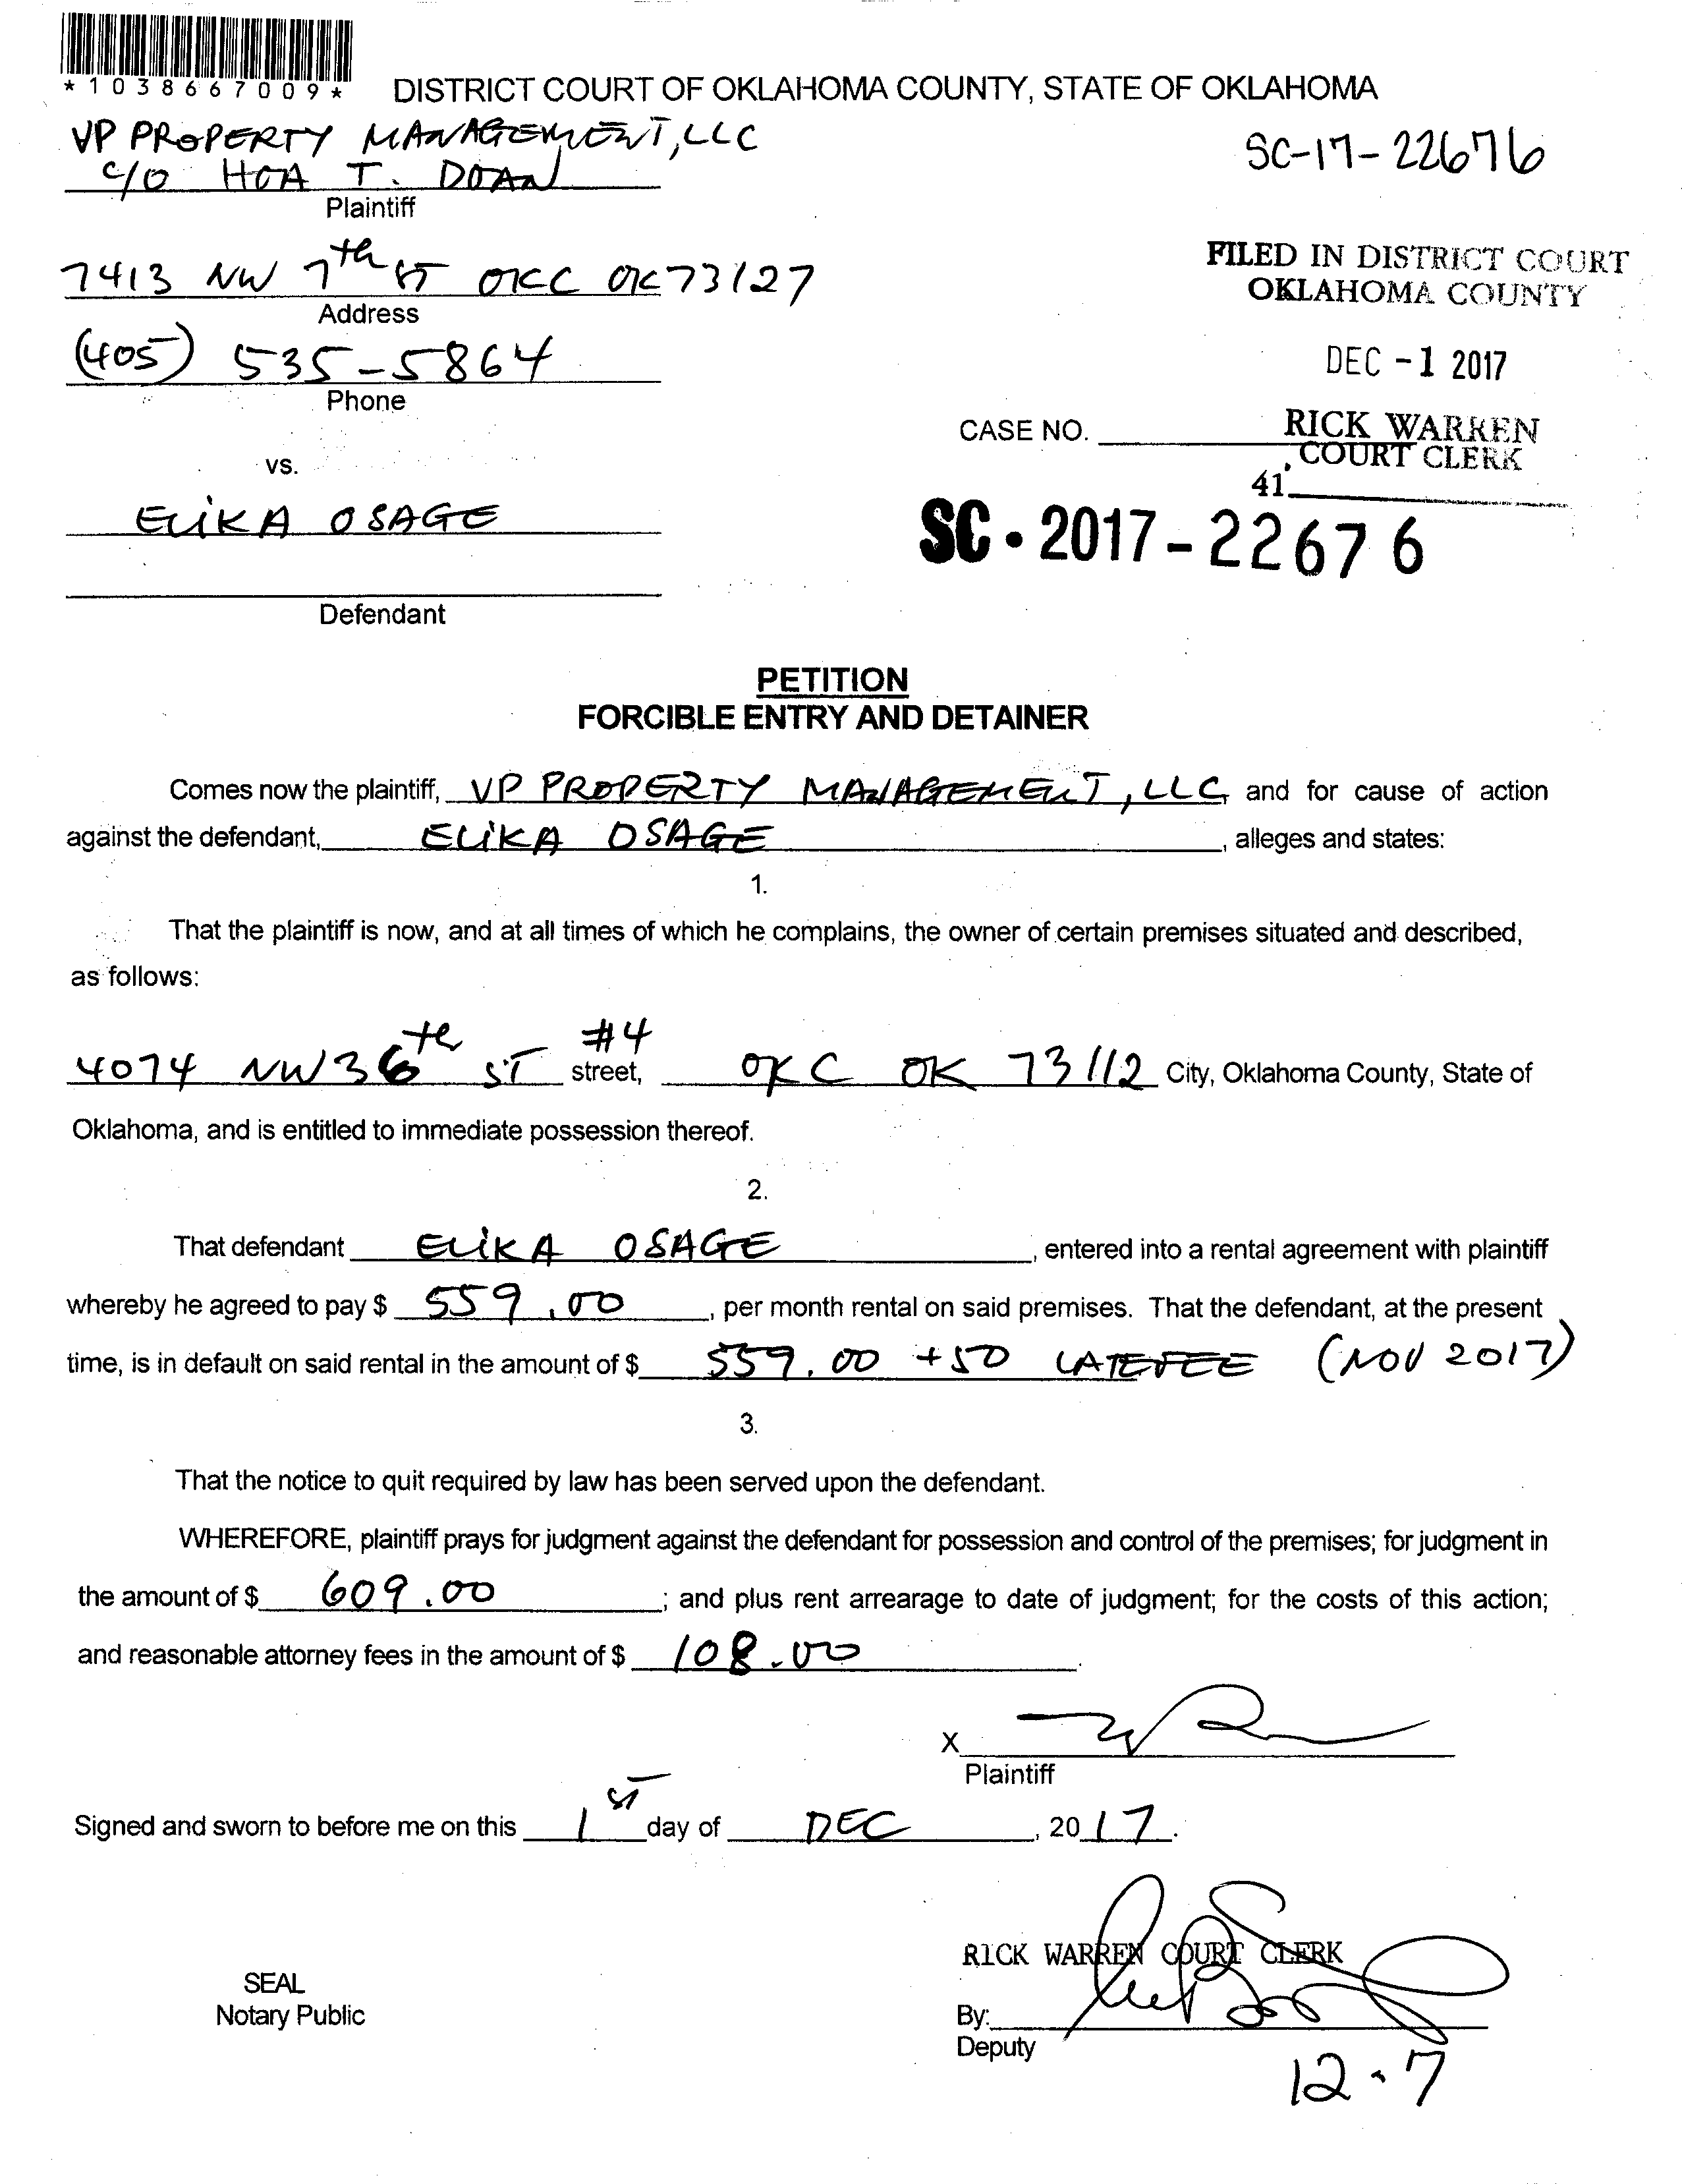 *1038667009*
DISTRICT COURT OF OKLAHOMA COUNTY, STATE OF OKLAHOMA
VP PROPERTY MANAGEMENT, LLC
SC-17-22676
C/O HOA T. DOAN
Plaintiff
7413 NW 7th ST OKC OK 73127
Address
FILED IN DISTRICT COURT
OKLAHOMA COUNTY
(405) 535-5864
Phone
DEC -1 2017
CASE NO.
RICK WARREN
COURT CLERK
41
vs.
ELIKA OSAGE
SC • 2017-22676
Defendant
PETITION
FORCIBLE ENTRY AND DETAINER
Comes now the plaintiff, VP PROPERTY MANAGEMENT, LLC, and for cause of action
against the defendant, ELIKA OSAGE, alleges and states:
1.
That the plaintiff is now, and at all times of which he complains, the owner of certain premises situated and described,
as follows:
4074 NW 36th ST #4 street, OKC OK 73112 City, Oklahoma County, State of
Oklahoma, and is entitled to immediate possession thereof.
2.
That defendant ELIKA OSAGE, entered into a rental agreement with plaintiff
whereby he agreed to pay $ 559.00, per month rental on said premises. That the defendant, at the present
time, is in default on said rental in the amount of $ 559.00 +50 LATEFEE (NOV 2017)
3.
That the notice to quit required by law has been served upon the defendant.
WHEREFORE, plaintiff prays for judgment against the defendant for possession and control of the premises; for judgment in
the amount of $ 609.00; and plus rent arrearage to date of judgment; for the costs of this action;
and reasonable attorney fees in the amount of $ 108.00.
X
Plaintiff
Signed and sworn to before me on this 1st day of DEC, 2017.
RICK WARREN COURT CLERK
SEAL
Notary Public
By:
Deputy
12.7